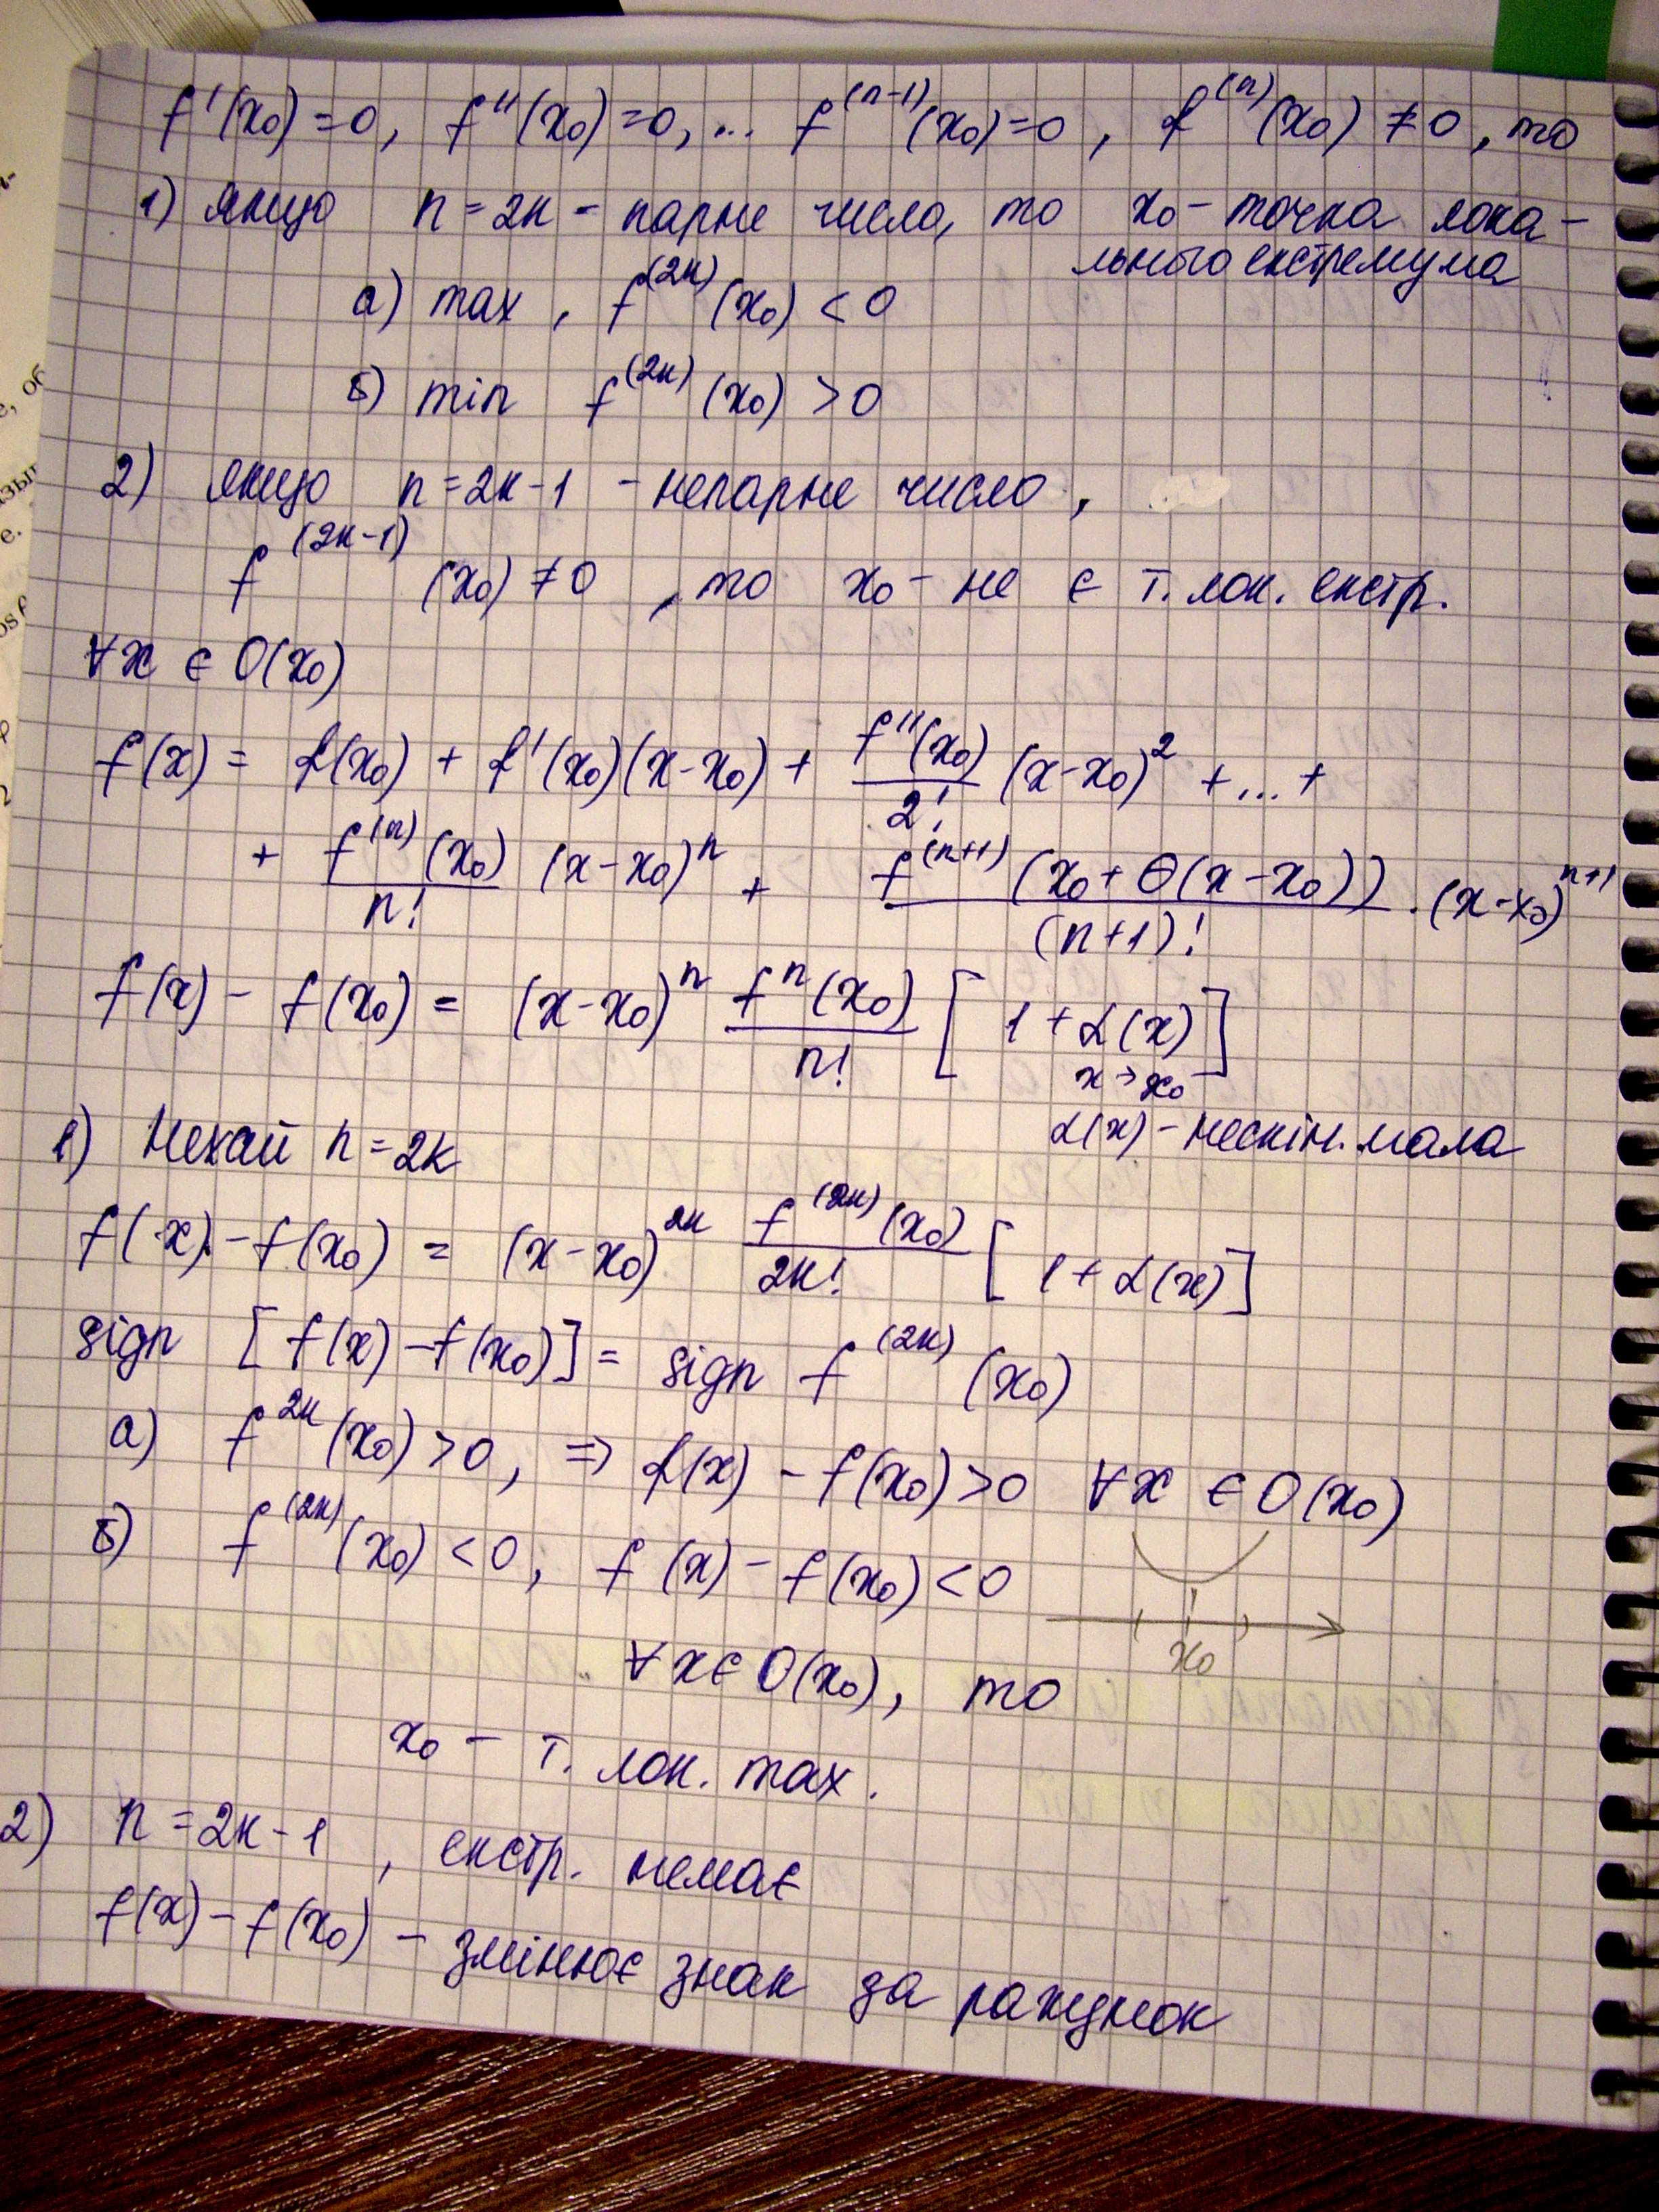 f'(x₀)=0, f''(x₀)=0,... f⁽ⁿ⁻¹⁾(x₀)=0, f⁽ⁿ⁾(x₀) ≠ 0, то
1) якщо n=2к - парне число, то x₀ - точка лока-
льного екстремума
а) max, f⁽²ᵏ⁾(x₀) < 0
б) min f⁽²ᵏ⁾(x₀) > 0
2) якщо n=2к-1 - непарне число,
f⁽²ᵏ⁻¹⁾(x₀) ≠ 0, то x₀ - не є т. лок. екстр.
∀x є O(x₀)
f(x) = f(x₀) + f'(x₀)(x-x₀) + f''(x₀)/2! (x-x₀)² + ... +
+ f⁽ⁿ⁾(x₀)/n! (x-x₀)ⁿ + f⁽ⁿ⁺¹⁾(x₀+θ(x-x₀))/(n+1)! · (x-x₀)ⁿ⁺¹
f(x) - f(x₀) = (x-x₀)ⁿ fⁿ(x₀)/n! [1 + α(x)]
x→x₀
α(x) - нескін. мала
1) Нехай n=2к
f(x) - f(x₀) = (x-x₀)²ᵏ f⁽²ᵏ⁾(x₀)/2к! [1 + α(x)]
sign [f(x) - f(x₀)] = sign f⁽²ᵏ⁾(x₀)
а) f²ᵏ(x₀) > 0, ⇒ f(x) - f(x₀) > 0 ∀x є O(x₀)
б) f⁽²ᵏ⁾(x₀) < 0, f(x) - f(x₀) < 0
x₀
∀x є O(x₀), то
x₀ - т. лок. max.
2) n=2к-1, екстр. немає
f(x) - f(x₀) - змінює знак за рахунок